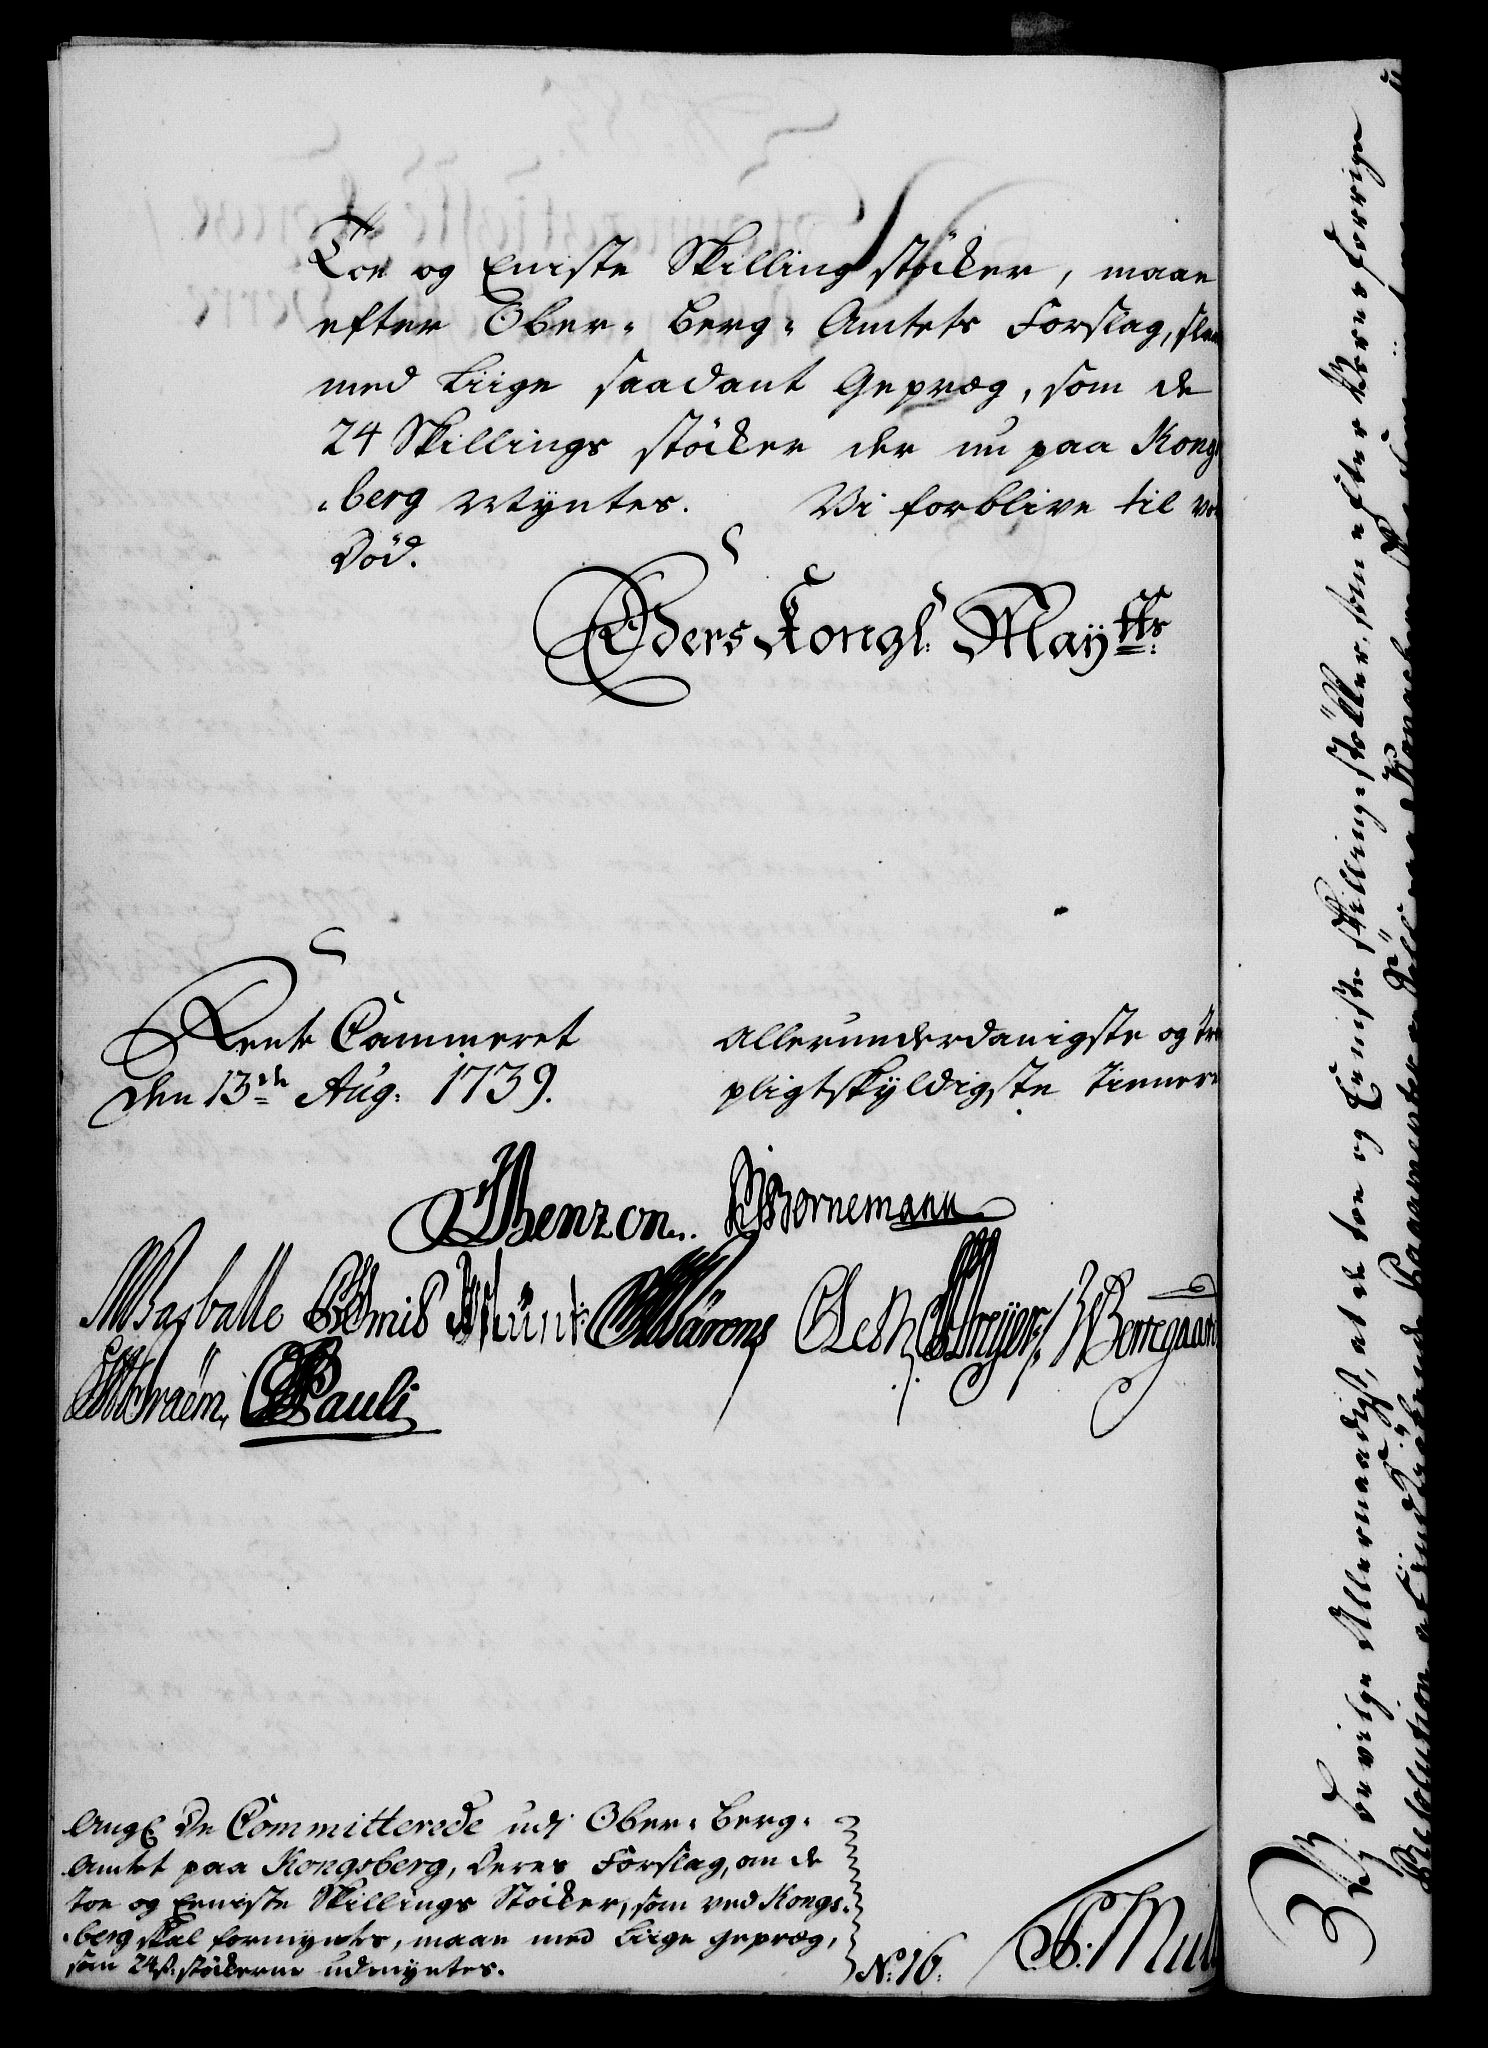 Toe og Eniste Skilling stöcker, maae
efter Ober- Berg- Amtets Forslag, slaaes
med liige saadant Gepræg, som de
24 Skillings stöcker der nu paa Kongs
-berg Myntes. Vi forblive til vor
Död.
Eders Kongl. Maytts:
Rente Cammeret
den 13de Aug: 1739.
Allerunderdanigste og Troe
pligtskyldigste Tienere
Benzon. Bornemann
Basballe Münk Wärens Lesch Dreyer Wennegaard
Braëm. Pauli
Ang: De Committerede udi Ober- Berg-
Amtet paa Kongsberg, deres Forslag, om de
toe og Eeniste Skillings Stöcker, som ved Kongs-
-berg skal formyntes, maae med liige gepræg,
som 24ß: stöckerne udmyntes.
No: 16.
Vj bevilge Allernaadigst, at de toe og Eeniste Skillingsstökker, som efter Vores forrige
Resolution